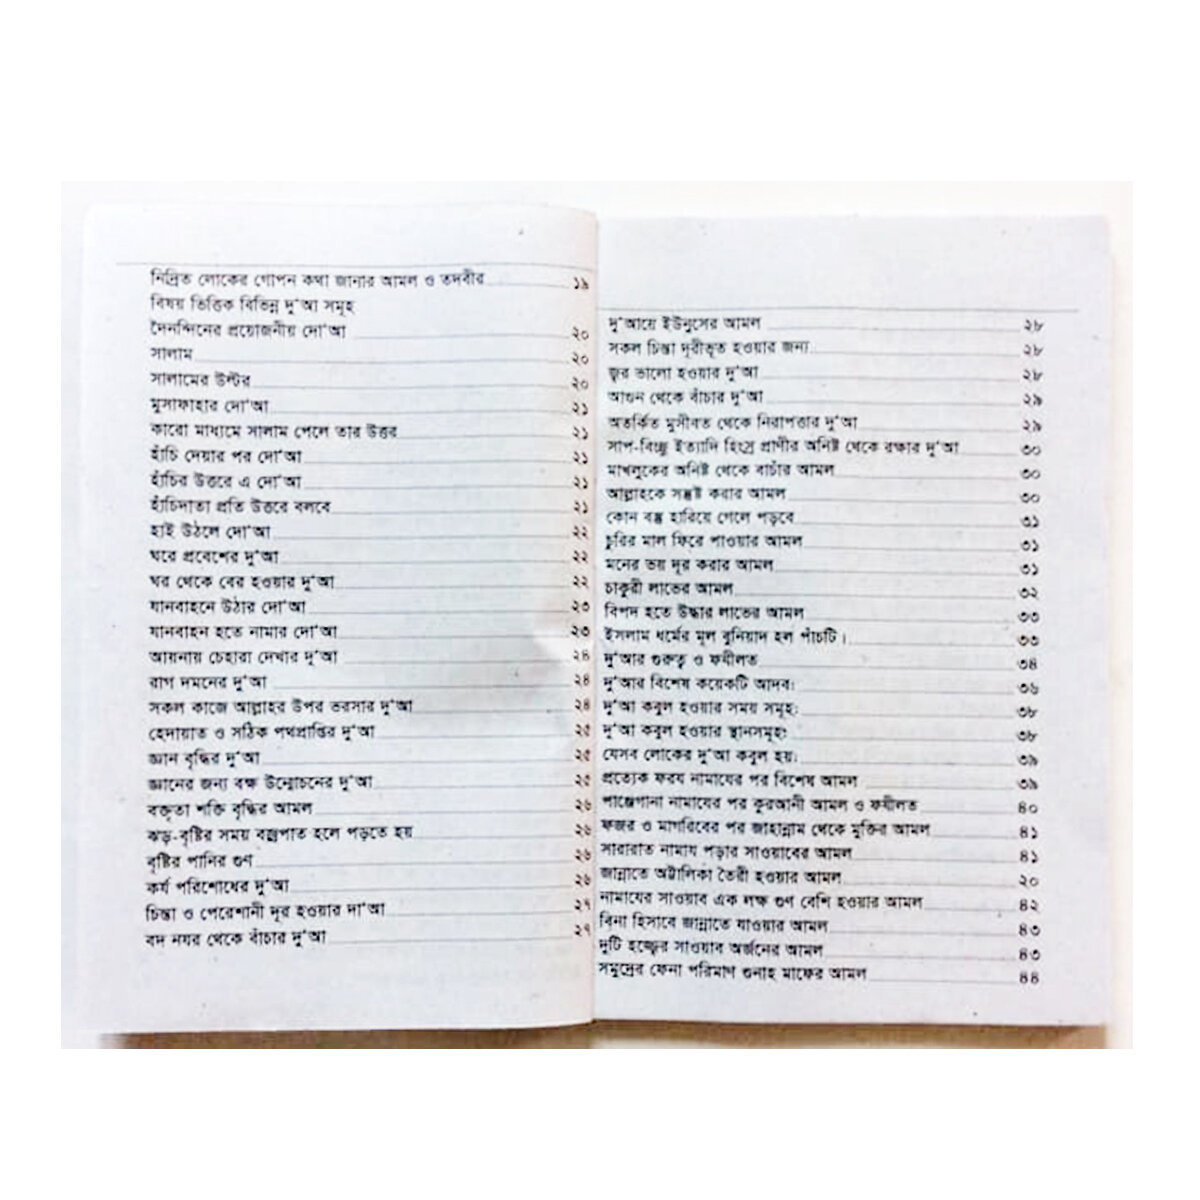 নিদ্রিত লোকের গোপন কথা জানার আমল ও তদবীর ১৯
বিষয় ভিত্তিক বিভিন্ন দু'আ সমূহ
দৈনন্দিনের প্রয়োজনীয় দো'আ ২০
সালাম ২০
সালামের উত্তর ২০
মুসাফাহার দো'আ ২১
কারো মাধ্যমে সালাম পেলে তার উত্তর ২১
হাঁচি দেয়ার পর দো'আ ২১
হাঁচির উত্তরে এ দো'আ ২১
হাঁচিদাতা প্রতি উত্তরে বলবে ২১
হাই উঠলে দো'আ ২২
ঘরে প্রবেশের দু'আ ২২
ঘর থেকে বের হওয়ার দু'আ ২২
যানবাহনে উঠার দো'আ ২৩
যানবাহন হতে নামার দো'আ ২৩
আয়নায় চেহারা দেখার দু'আ ২৪
রাগ দমনের দু'আ ২৪
সকল কাজে আল্লাহর উপর ভরসার দু'আ ২৪
হেদায়াত ও সঠিক পথপ্রাপ্তির দু'আ ২৫
জ্ঞান বৃদ্ধির দু'আ ২৫
জ্ঞানের জন্য বক্ষ উন্মোচনের দু'আ ২৫
বক্তৃতা শক্তি বৃদ্ধির আমল ২৬
ঝড়-বৃষ্টির সময় বজ্রপাত হলে পড়তে হয় ২৬
বৃষ্টির পানির গুণ ২৬
কর্য পরিশোধের দু'আ ২৬
চিন্তা ও পেরেশানী দূর হওয়ার দা'আ ২৭
বদ নযর থেকে বাঁচার দু'আ ২৭
দু'আয়ে ইউনুসের আমল ২৮
সকল চিন্তা দূরীভূত হওয়ার জন্য ২৮
জ্বর ভালো হওয়ার দু'আ ২৮
আগুন থেকে বাঁচার দু'আ ২৯
অতর্কিত মুসীবত থেকে নিরাপত্তার দু'আ ২৯
সাপ-বিচ্ছু ইত্যাদি হিংস্র প্রাণীর অনিষ্ট থেকে রক্ষার দু'আ ৩০
মাখলুকের অনিষ্ট থেকে বাচাঁর আমল ৩০
আল্লাহকে সন্তুষ্ট করার আমল ৩০
কোন বস্তু হারিয়ে গেলে পড়বে ৩১
চুরির মাল ফিরে পাওয়ার আমল ৩১
মনের ভয় দূর করার আমল ৩১
চাকুরী লাভের আমল ৩২
বিপদ হতে উদ্ধার লাভের আমল ৩৩
ইসলাম ধর্মের মূল বুনিয়াদ হল পাঁচটি। ৩৩
দু'আর গুরুত্ব ও ফযীলত ৩৪
দু'আর বিশেষ কয়েকটি আদব: ৩৬
দু'আ কবুল হওয়ার সময় সমূহ: ৩৮
দু'আ কবুল হওয়ার স্থানসমূহ: ৩৮
যেসব লোকের দু'আ কবুল হয়: ৩৯
প্রত্যেক ফরয নামাযের পর বিশেষ আমল ৩৯
পাঞ্জেগানা নামাযের পর কুরআনী আমল ও ফযীলত ৪০
ফজর ও মাগরিবের পর জাহান্নাম থেকে মুক্তির আমল ৪১
সারারাত নামায পড়ার সাওয়াবের আমল ৪১
জান্নাতে অট্টালিকা তৈরী হওয়ার আমল ২০
নামাযের সাওয়াব এক লক্ষ গুণ বেশি হওয়ার আমল ৪২
বিনা হিসাবে জান্নাতে যাওয়ার আমল ৪৩
দুটি হজ্জের সাওয়াব অর্জনের আমল ৪৩
সমুদ্রের ফেনা পরিমাণ গুনাহ মাফের আমল ৪৪